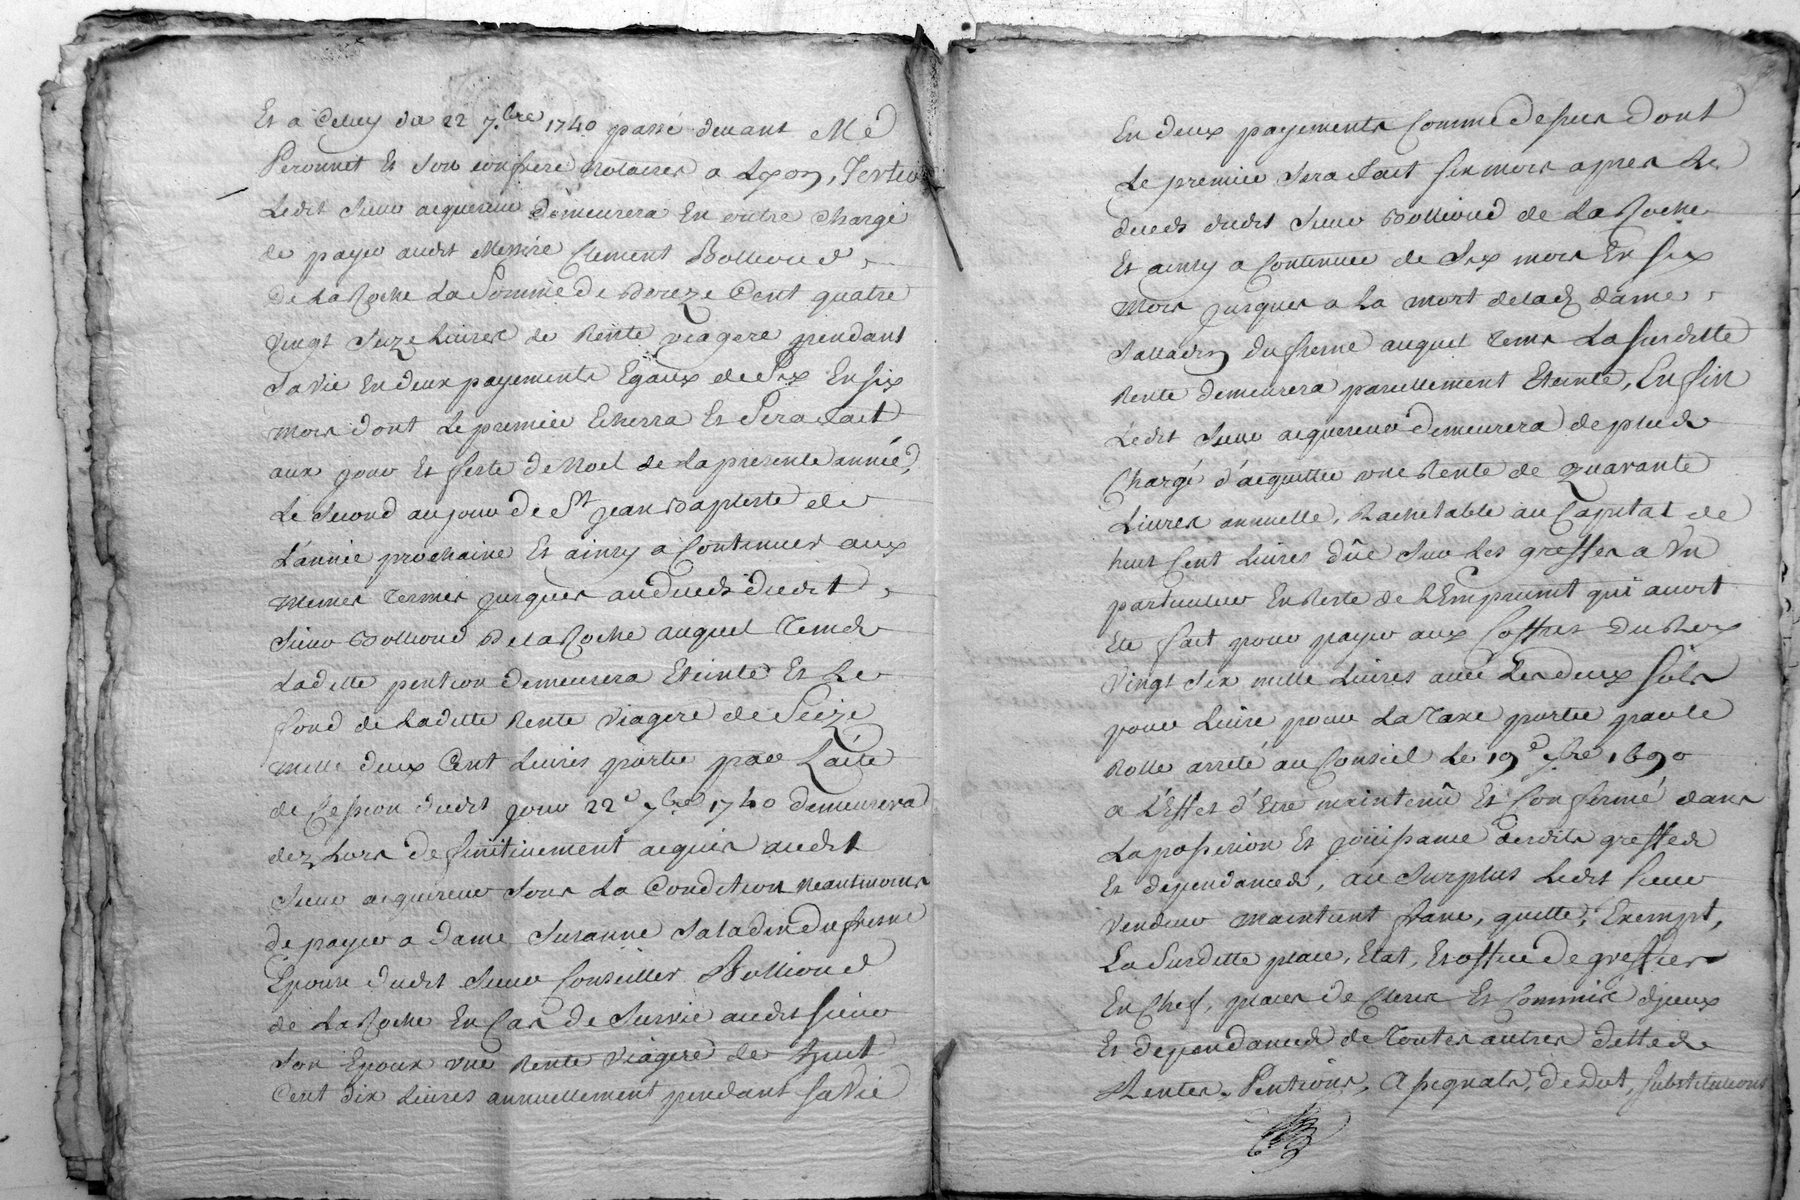 Et a Celuy du 22 7.bre 1740 passé devant Me
Peronnet Et Son confrere Notaires a Lyon, Tertio
Ledit Sieur acquereur Demeurera En outre Chargé
de payer audit Messire Clement Bollioud
De La Roche La Somme De Douze Cent quatre
Vingt Seize Livres de Rente viagere pendant
Sa Vie En deux payements Egaux de Six En Six
Mois dont Le premier Echerra Et Sera fait
aux jour Et feste De Noel de La presente année,
Le Second au jour De St Jean Baptiste de
L'année prochaine Et ainsy a Continuer aux
Memes Termes jusques au Deceds dudit
Sieur Bollioud De La Roche auquel Tems
Ladette pention Demeurera Eteinte Et Le
fond de Ladette Rente Viagere de Seize
Mille deux Cent Livres portée par L'acte
de Cession dudit jour 22e 7bre 1740 Demeurera
dez Lors Definitivement acquis audit
Sieur acquereur Sous La Condition Neantmoins
De payer a Dame Suzanne Saladin Dufresne
Epouse dudit Sieur Conseiller Bollioud
de La Roche En Cas de Survie audit Sieur
Son Epoux une Rente Viagere de huit
Cent Dix Livres annuellement pendant Sa Vie
En deux payements Comme Dessus dont
Le premier Sera fait Six mois apres Le
deceds dudit Sieur Bollioud de La Roche
Et ainsy a Continuer de Six mois En Six
Mois jusques a La mort de lad. dame
Saladin Dufresne auquel Tems La Susdette
Rente Demeurera pareillement Eteinte, Enfin
Ledit Sieur acquereur Demeurera de plus
Chargé d'acquitter une Rente de Quarante
Livres annuelle, Rachetable au Capital de
huit Cent Livres Dûe Sur Les greffes a Un
particulier En Reste de L'Emprunt qui avoit
Eté fait pour payer aux Coffres Du Roy
Vingt Six mille Livres avec Les deux Sols
pour Livre pour La Taxe portée par le
Rolle arreté au Conseil Le 19e 7bre 1690
a L'Effet d'Etre maintenû Et Confirmé dans
La possession Et joüissance desdits greffes
Et dependances, au Surplus Ledit Sieur
Vendeur Maintient franc, quitte, Exempt,
La Susdette place, Etat, Et office De greffier
En Chef, places de Clercs Et Commis d'jceux
Et dependances de Toutes autres Dettes
Rentes, Pentions, assignats, de Dot, Substitutions